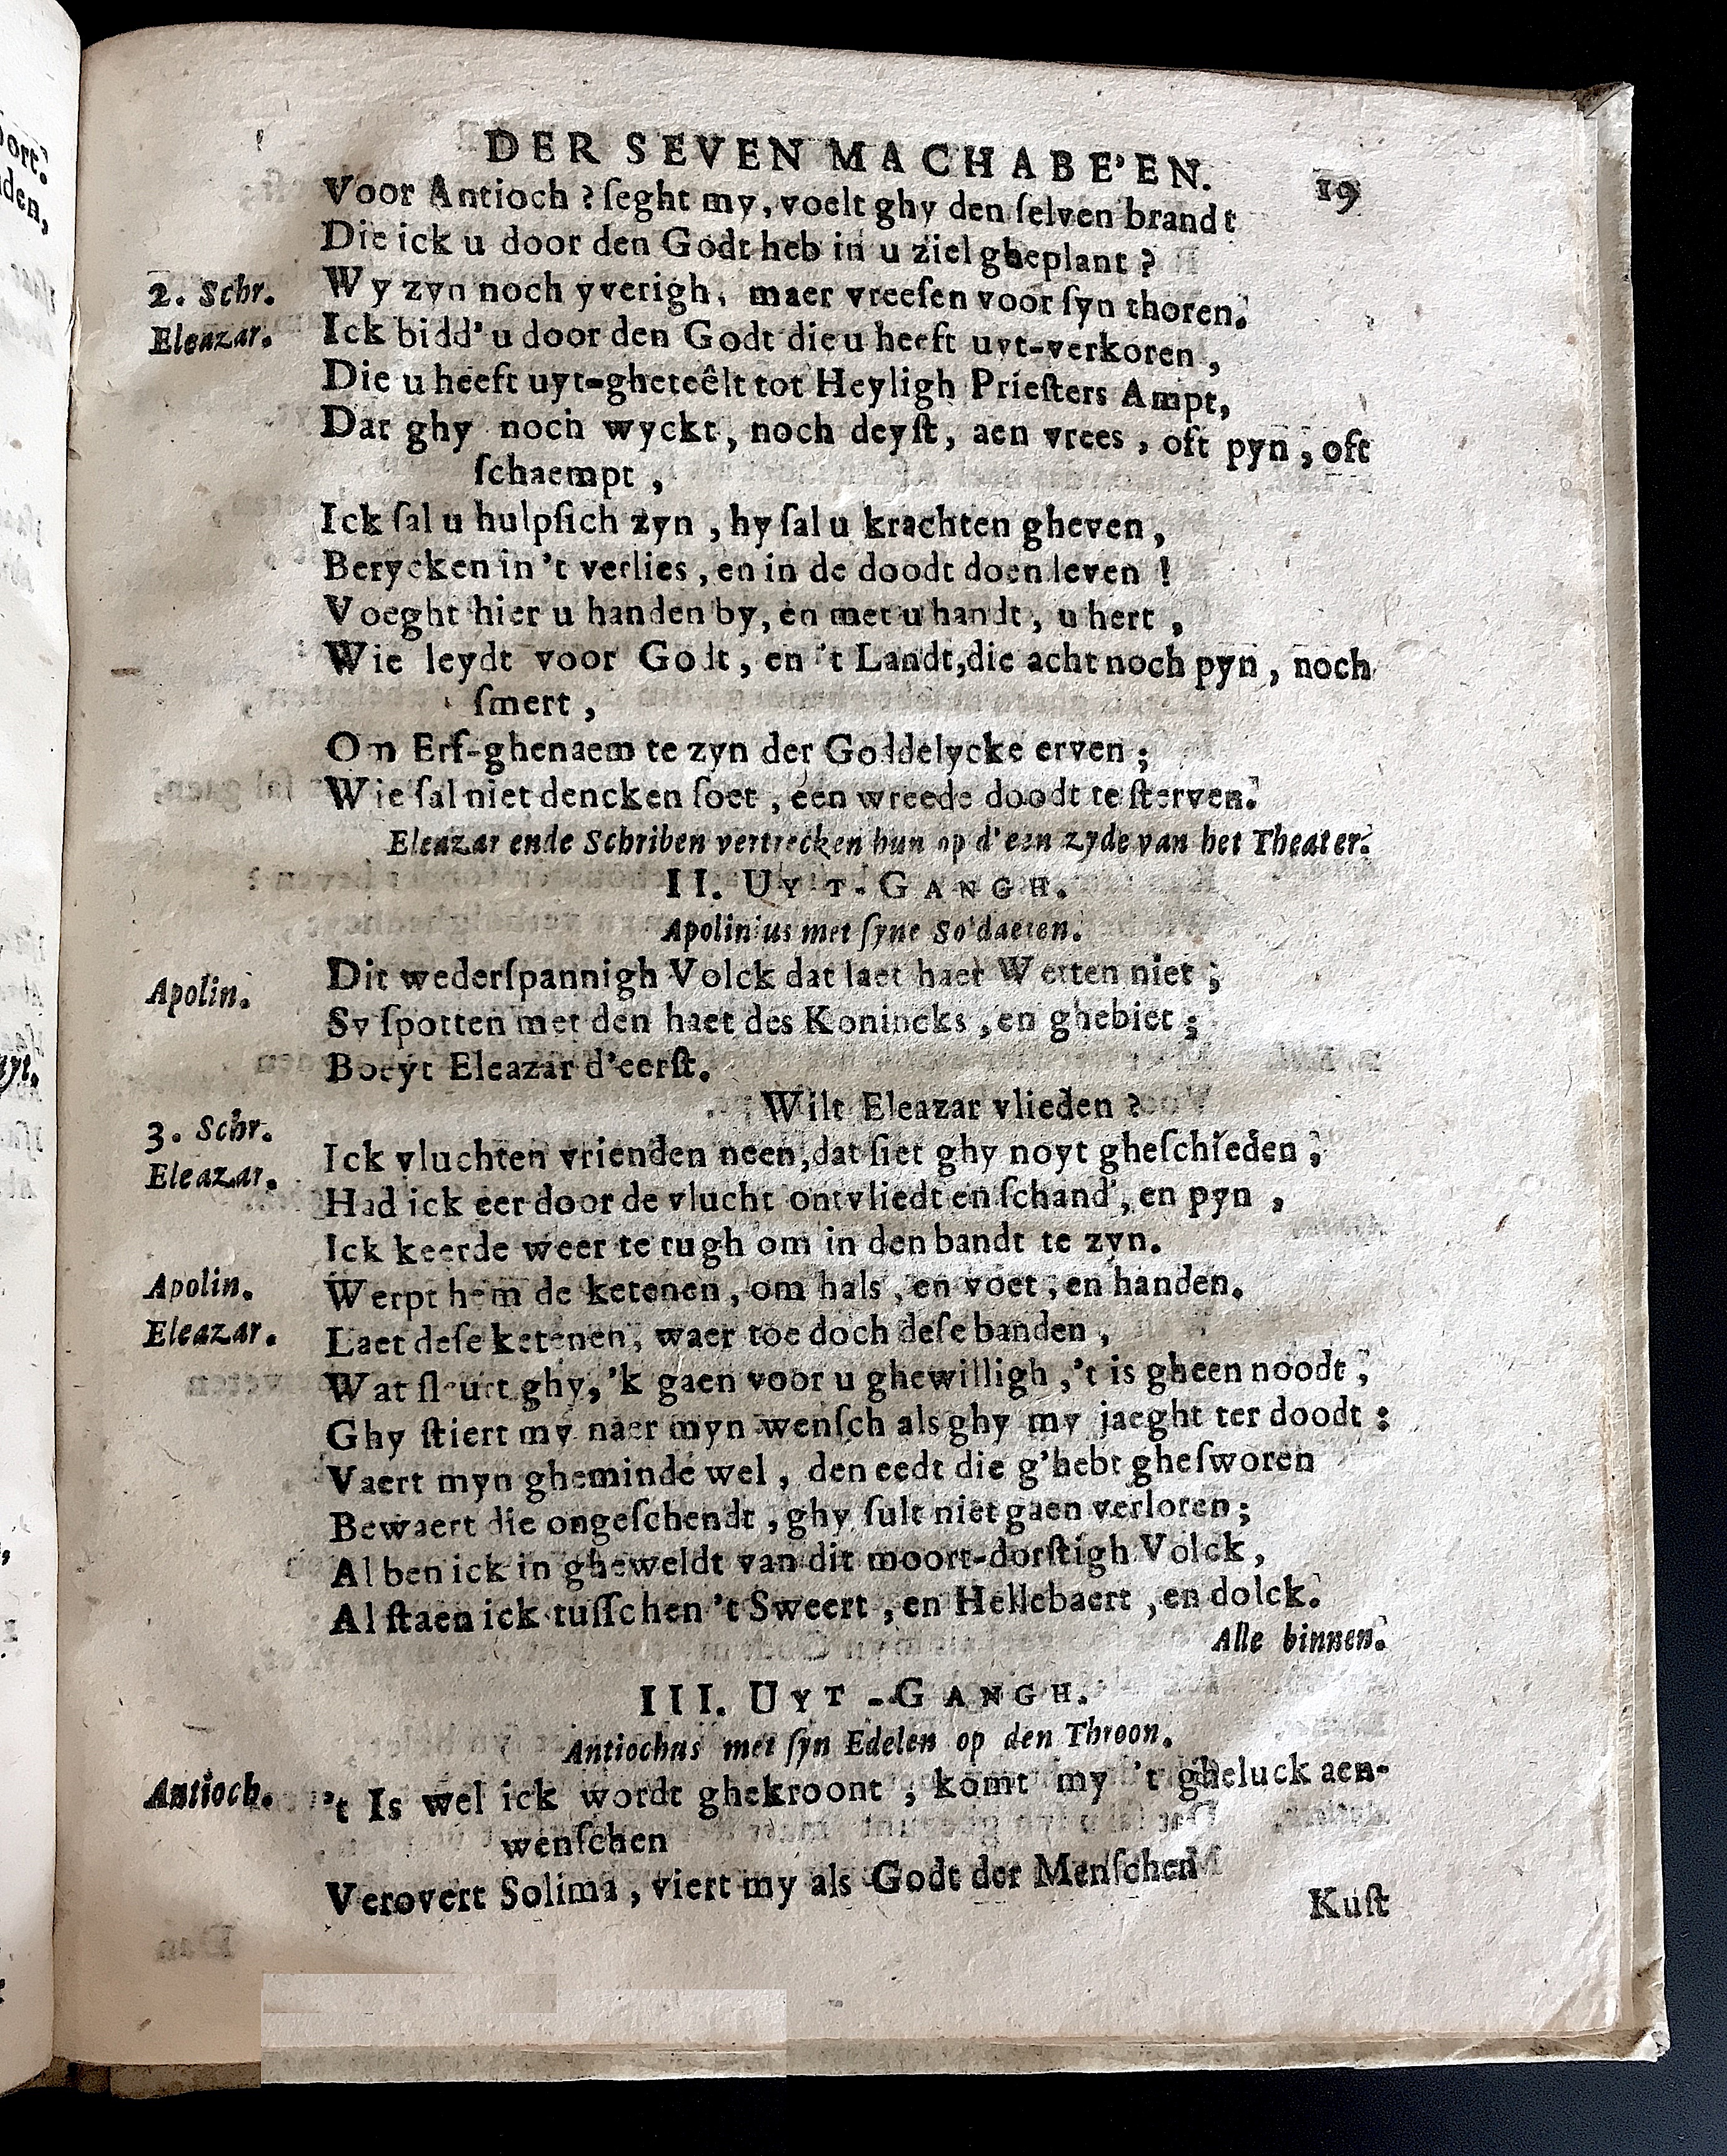 DER SEVEN MACHABE'EN. 19
Voor Antioch ? ſeght my, voelt ghy den ſelven brandt
Die ick u door den Godt heb in u ziel gheplant ?
2. Schr. Wy zyn noch yverigh, maer vreeſen voor ſyn thoren.
Eleazar. Ick bidd' u door den Godt die u heeft uyt-verkoren,
Die u heeft uyt-gheteêlt tot Heyligh Prieſters Ampt,
Dat ghy noch wyckt, noch deyſt, aen vrees, oft pyn, oft
ſchaempt,
Ick ſal u hulpſich zyn, hy ſal u krachten gheven,
Berycken in 't verlies, en in de doodt doen leven !
Voeght hier u handen by, en met u handt, u hert,
Wie leydt voor Godt, en 't Landt, die acht noch pyn, noch
ſmert,
Om Erf-ghenaem te zyn der Goddelycke erven;
Wie ſal niet dencken ſoet, een wreede doodt te ſterven.
Eleazar ende Schriben vertrecken hun op d'een zyde van het Theater.
II. UYT-GANGH.
Apolinius met ſyne Soldaeten.
Apolin. Dit wederſpannigh Volck dat laet haer Wetten niet;
Sy ſpotten met den haet des Konincks, en ghebiet;
Boeyt Eleazar d'eerſt.
3. Schr. Wilt Eleazar vlieden ?
Eleazar. Ick vluchten vrienden neen, dat ſiet ghy noyt gheſchieden;
Had ick eer door de vlucht ontvliedt en ſchand', en pyn,
Ick keerde weer te rugh om in den bandt te zyn.
Apolin. Werpt hem de ketenen, om hals, en voet, en handen.
Eleazar. Laet deſe ketenen, waer toe doch deſe banden,
Wat ſleurt ghy, 'k gaen voor u ghewilligh, 't is gheen noodt;
Ghy ſtiert my naer myn wenſch als ghy my jaeght ter doodt:
Vaert myn gheminde wel, den eedt die g'hebt gheſworen
Bewaert die ongeſchendt, ghy ſult niet gaen verloren;
Al ben ick in gheweldt van dit moort-dorſtigh Volck,
Al ſtaen ick tuſſchen 't Sweert, en Hellebaert, en dolck.
Alle binnen.
III. UYT-GANGH.
Antiochus met ſyn Edelen op den Throon.
Antioch. 't Is wel ick wordt ghekroont, komt my 't gheluck aen-
wenſchen
Verovert Solima, viert my als Godt der Menſchen
Kuſt